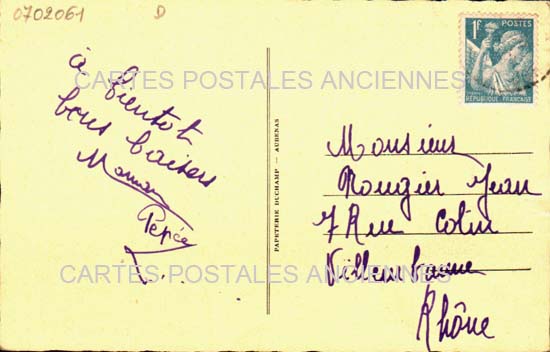 0702061 D
1F POSTES
RÉPUBLIQUE FRANÇAISE
CARTES POSTALES ANCIENNES
à bientôt
bons baisers
Maman
Pépée
PAPETERIE DUCHAMP — AUBENAS
Monsieur
Rougier Jean
7 Rue Colin
Villeurbanne
Rhône
CARTES POSTALES ANCIENNES